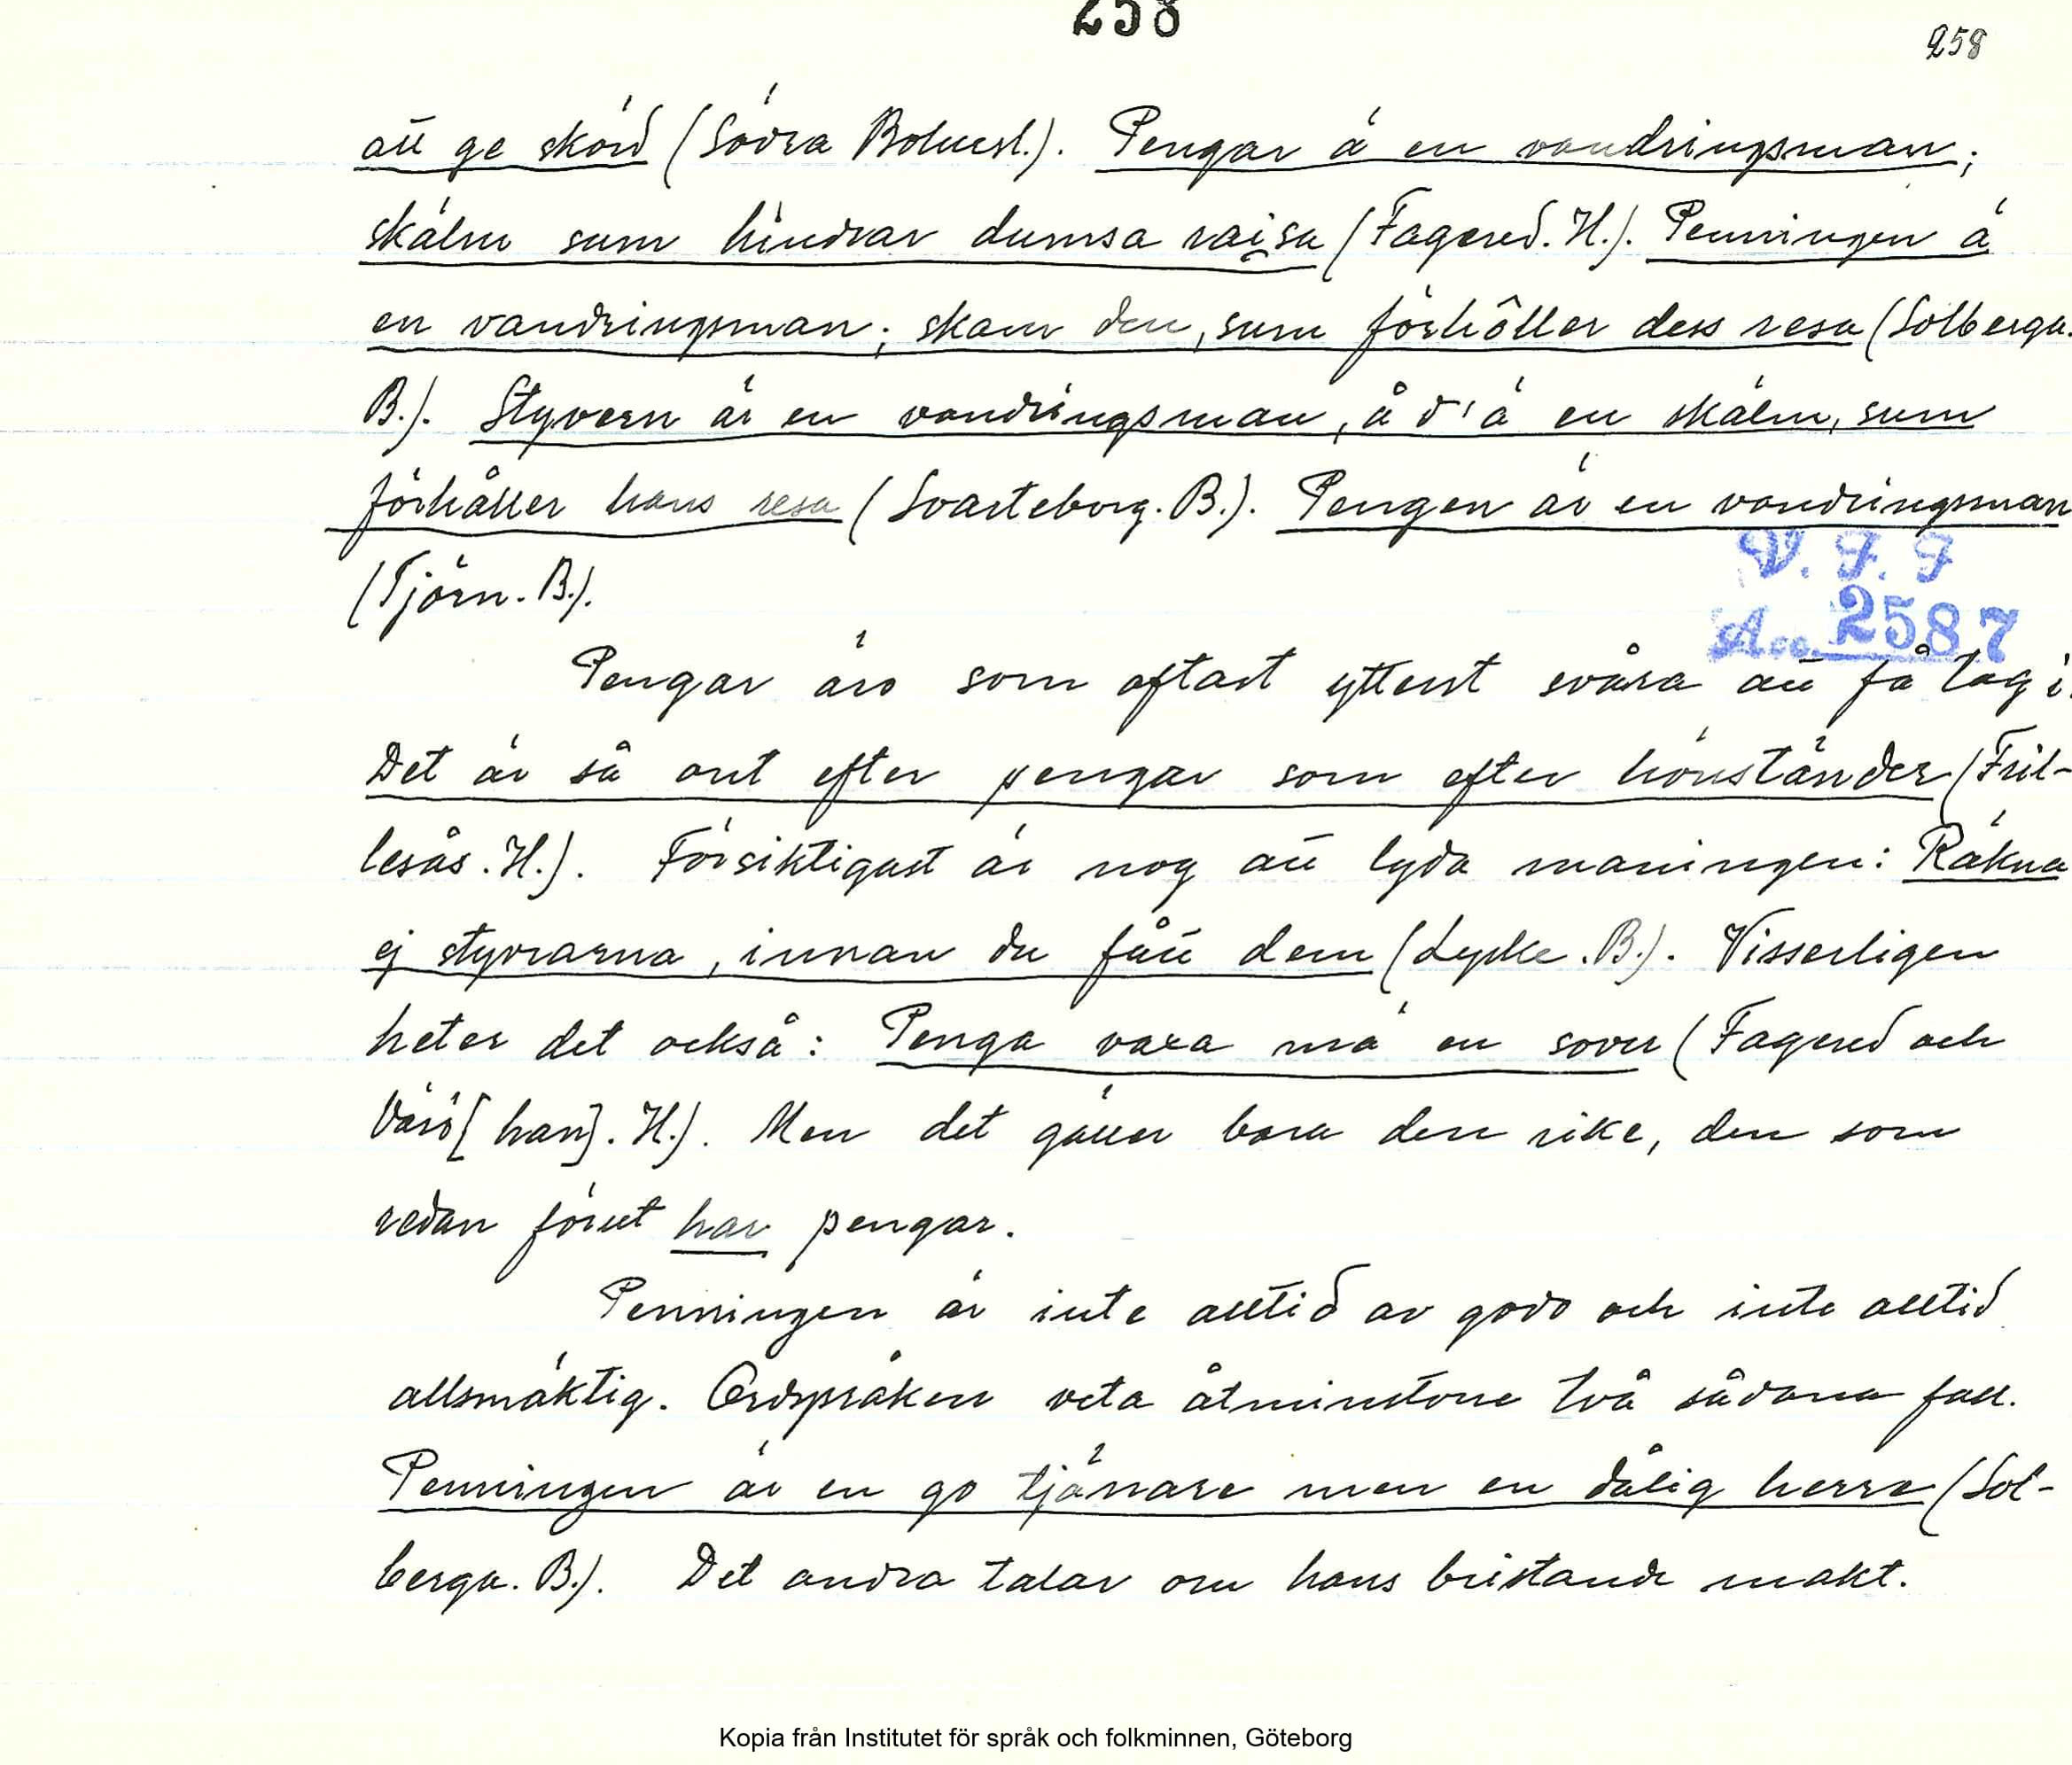 258
258
att ge skörd (Södra Bohusl.). Pengar ä en vandringsman;
skälm sum hindrar dumsa raisa (Fagered. H.). Penningen ä
en vandringsman; skam den, sum förhôller dess resa (Solberga.
B.). Styvern är en vandringsman, å d'ä en skälm, sum
förhåller hans resa (Svarteborg. B.). Pengen är en vandringsman
(Tjörn. B.).
V. F. F
Acc. 2587
Pengar äro som oftast ytterst svåra att få tag i.
Det är så ont efter pengar som efter hönständer (Fril-
lesås. H.). Försiktigast är nog att lyda maningen: Räkna
ej styvrarna, innan du fått dem (Lycke. B.). Visserligen
heter det också: Penga vaxa mä en sover (Fagered och
Värö [han]. H.). Men det gäller bara den rike, den som
redan förut har pengar.
Penningen är inte alltid av godo och inte alltid
allsmäktig. Ordspråken veta åtminstone två sådana fall.
Penningen är en go tjänare men en dålig herre (Sol-
berga. B.). Det andra talar om hans bristande makt.
Kopia från Institutet för språk och folkminnen, Göteborg